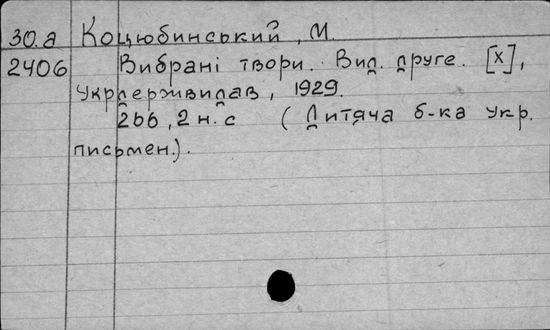 30.а Коцюбинський, М.
2406 Вибрані твори. Вид. друге. [Х],
Укрдержвидав, 1929.
266, 2 н. с (Дитяча б-ка укр.
письмен.).